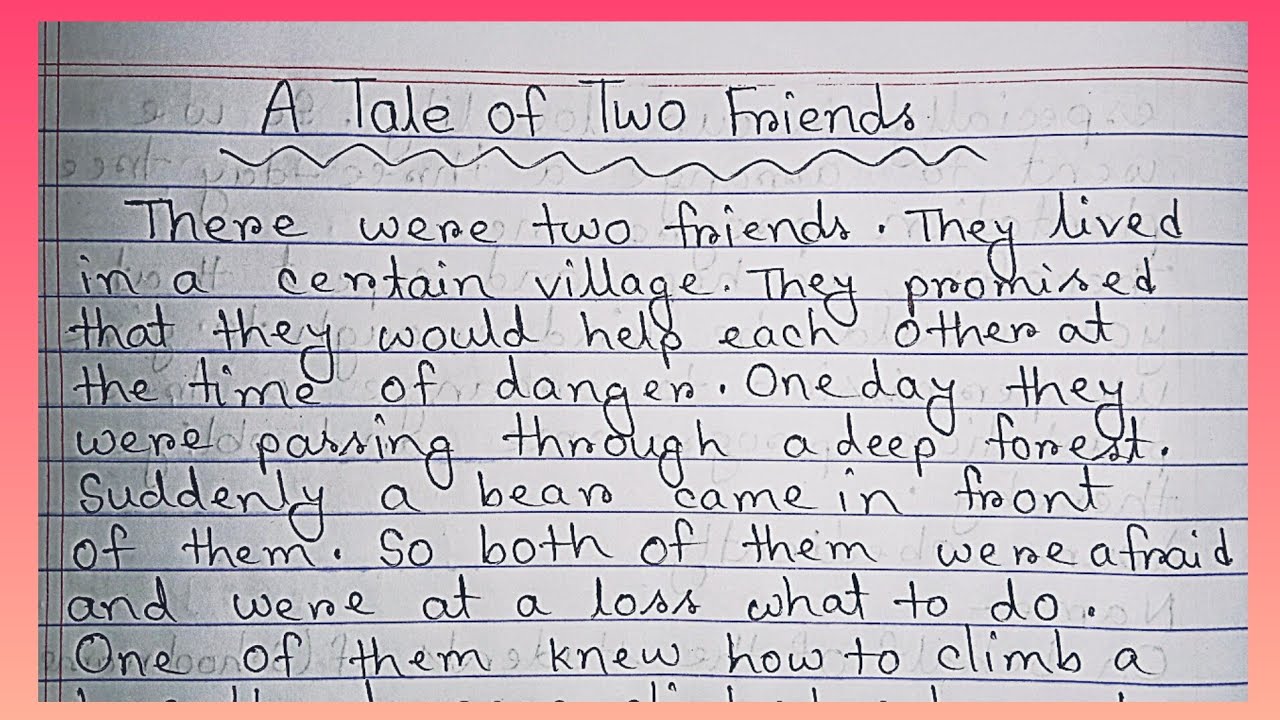 A Tale of Two Friends
There were two friends. They lived
in a certain village. They promised
that they would help each other at
the time of danger. One day they
were passing through a deep forest.
Suddenly a bear came in front
of them. So both of them were afraid
and were at a loss what to do.
One of them knew how to climb a